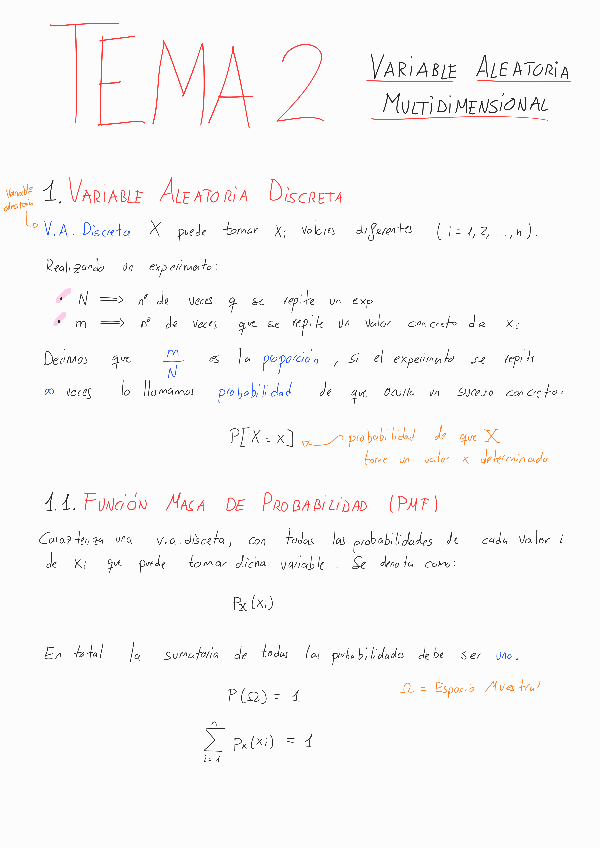 TEMA 2
VARIABLE ALEATORIA
MULTIDIMENSIONAL
Variable
aleatoria
1. VARIABLE ALEATORIA DISCRETA
V.A. Discreta X puede tomar xi valores diferentes (i = 1, 2, ..., n).
Realizando un experimento:
• N => nº de veces q se repite un exp
• m => nº de veces que se repite un valor concreto de xi
Decimos que m/N es la proporción, si el experimento se repite
∞ veces lo llamamos probabilidad de que ocurra un suceso concreto:
P[X = x] probabilidad de que X
tome un valor x determinado
1.1. FUNCIÓN MASA DE PROBABILIDAD (PMF)
Caracteriza una v.a. discreta, con todas las probabilidades de cada valor i
de xi que puede tomar dicha variable. Se denota como:
Px(xi)
En total la sumatoria de todas las probabilidades debe ser uno.
P(Ω) = 1
Ω = Espacio Muestral
n
∑ Px(xi) = 1
i=1